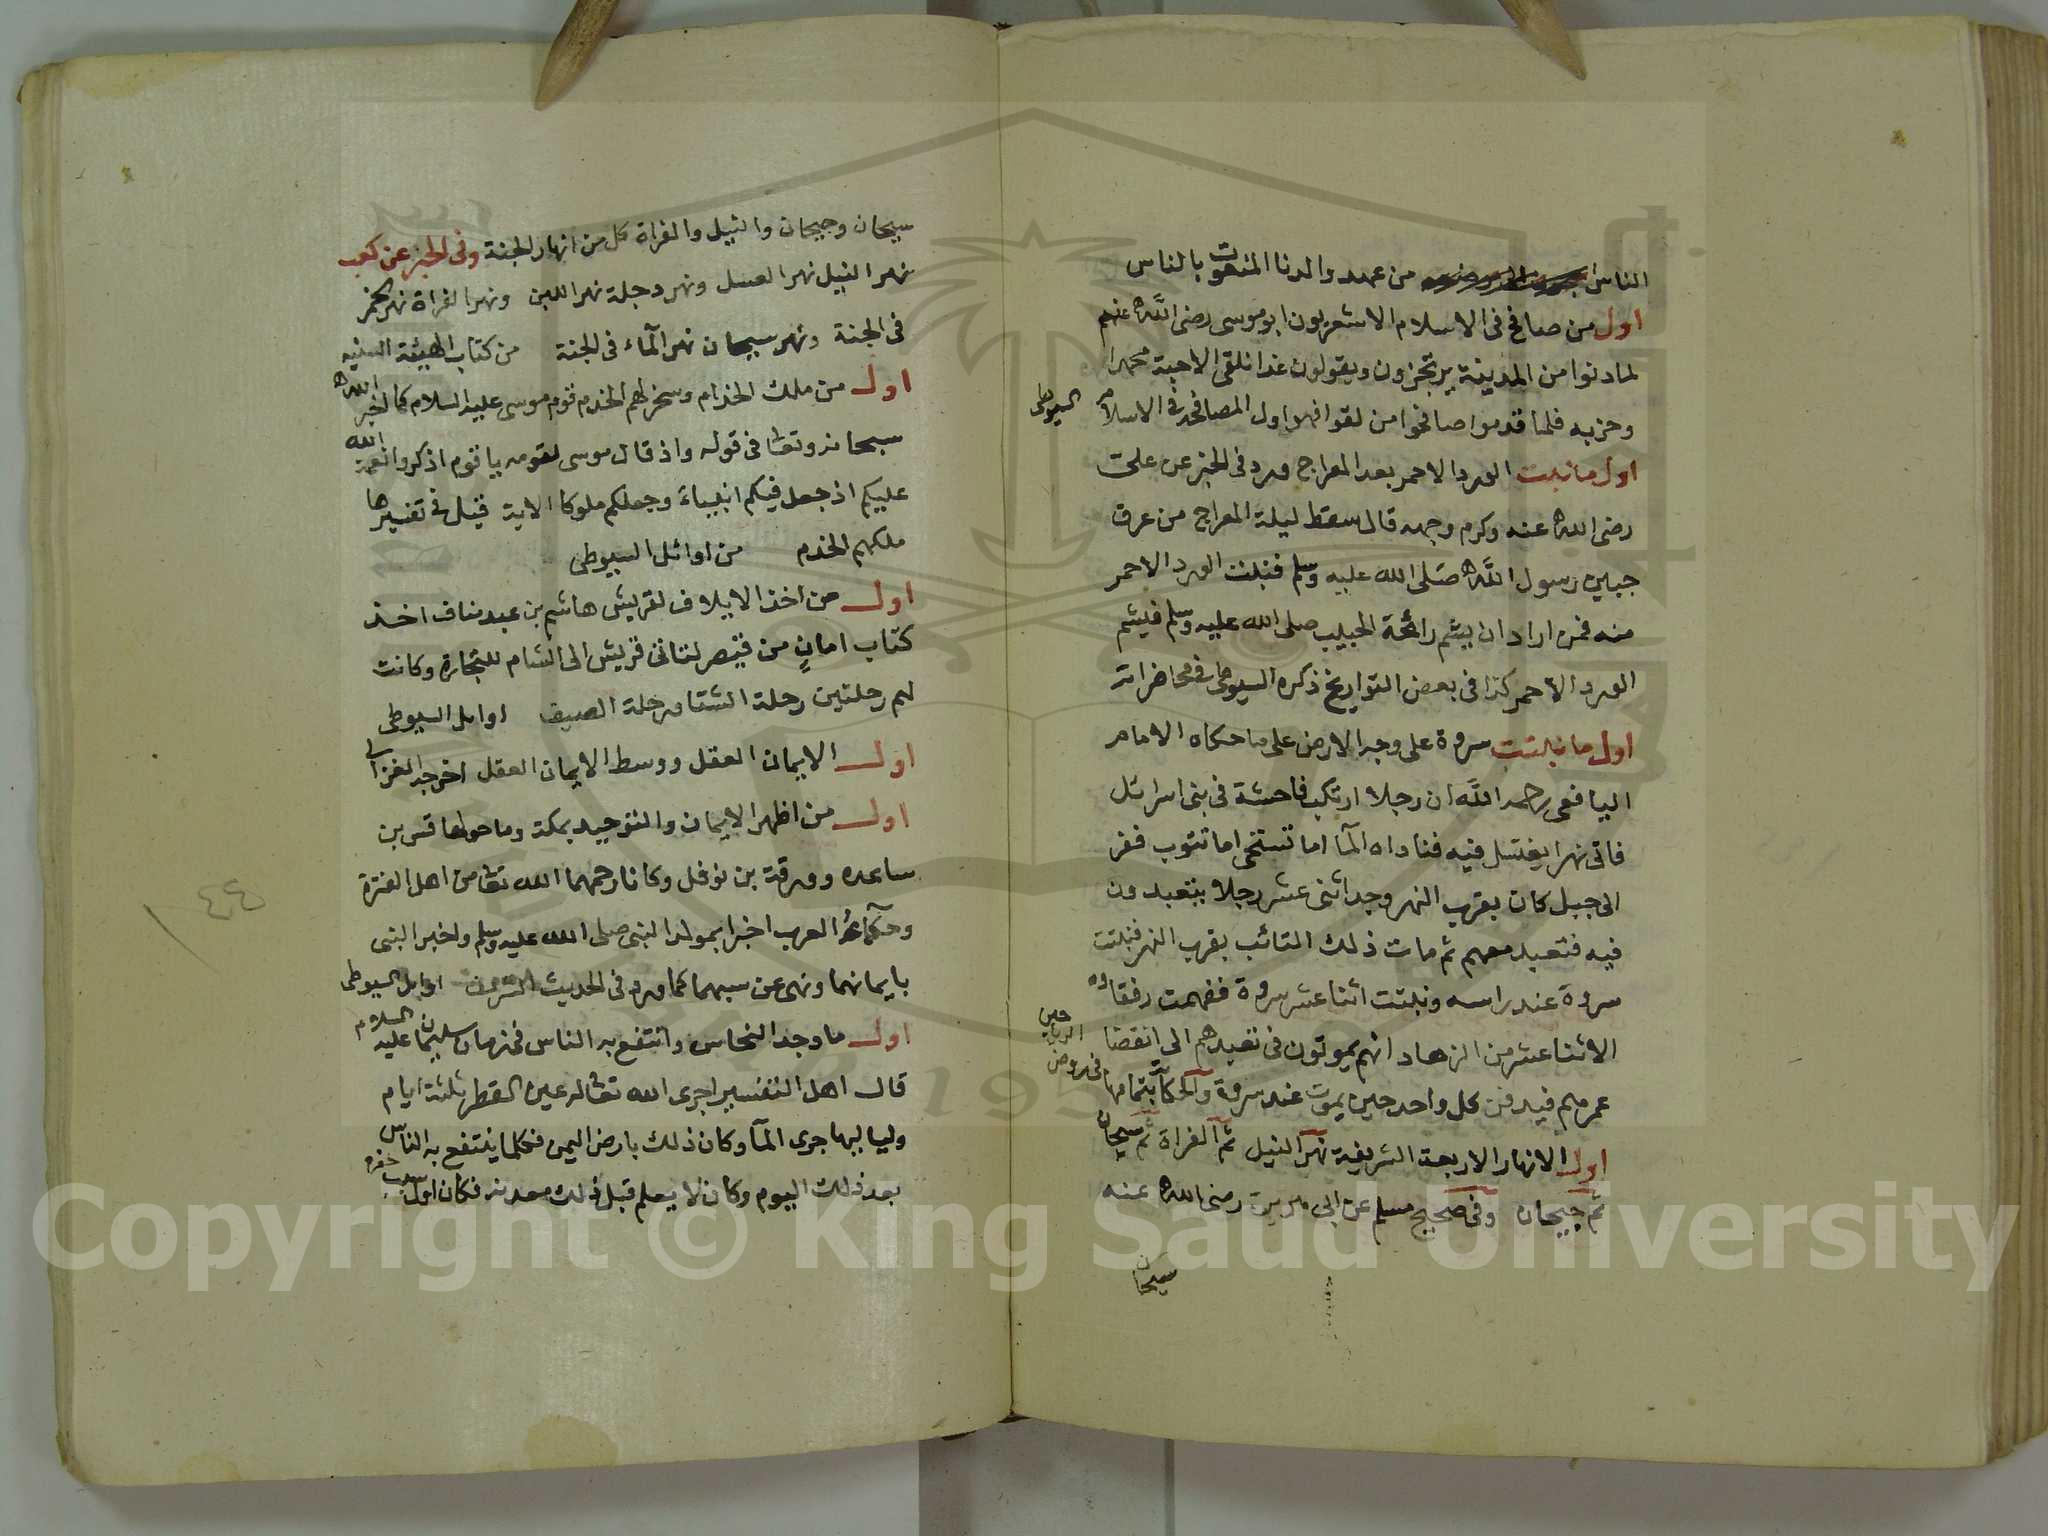 الناس من عهد والدنا المنعوت بالناس
اول من صافح فى الاسلام الاشعريون ابو موسى رضى الله عنهم
لما دنوا من المدينة يرتجزون ويقولون غدا نلقى الاحبة محمدا
وحزبه فلما قدموا صافحوا من لقوا فهو اول المصافحة فى الاسلام
السيوطى
اول ما نبت الورد الاحمر بعد المعراج ورد فى الخبر عن على
رضى الله عنه وكرم وجهه قال سقط ليلة المعراج من عرق
جبين رسول الله صلى الله عليه وسلم فنبت الورد الاحمر
منه فمن اراد ان يشم رائحة الحبيب صلى الله عليه وسلم فليشم
الورد الاحمر كذا فى بعض التواريخ ذكره السيوطى فى محاضراته
اول ما نبتت سروة على وجه الارض على ما حكاه الامام
اليافعى رحمه الله ان رجلا ارتكب فاحشة فى بنى اسرائل
فاتى نهرا يغتسل فيه فناداه المآ اما تستحى اما تتوب ففر
الى جبل كان بقرب النهر وجد اثنى عشر رجلا يتعبدون
فيه فتعبد معهم ثم مات ذلك التائب بقرب النهر فنبتت
سروة عند راسه ونبتت اثنا عشر سروة ففهمت رفقاؤه
الاثنا عشر من الزهاد انهم يموتون فى تعبدهم الى انقضا
عمرهم فيه فن كل واحد حين يموت عند سروة والحكاية بتمامها
فى روض الرياحين
اول الانهار الاربعة الشريفة نهر النيل ثم الفراة ثم سيحان
ثم جيحان وفى صحيح مسلم عن ابى هريرة رضى الله عنه
سيحان
سيحان وجيحان والنيل والفراة كل من انهار الجنة وفى الخبر عن كعب
نهر النيل نهر العسل ونهر دجلة نهر اللبن ونهر الفراة نهر الخمر
فى الجنة ونهر سيحان نهر المآء فى الجنة من كتاب الهيئة السنيه
اول من ملك الخدام وسخر لهم الخدم قوم موسى عليه السلام كما اخبر الله
سبحانه وتعالى فى قوله واذ قال موسى لقومه يا قوم اذكروا نعمة الله
عليكم اذ جعل فيكم انبياء وجعلكم ملوكا الاية قيل فى تفسيرها
ملكهم الخدم من اوائل السيوطى
اول من اخذ الايلاف لقريش هاشم بن عبد مناف اخذ
كتاب امان من قيصر لتاتى قريش الى الشام للتجارة وكانت
لهم رحلتين رحلة الشتا ورحلة الصيف اوايل السيوطى
اول الايمان العقل ووسط الايمان العقل اخرجه الغزالى
اول من اظهر الايمان والتوحيد بمكة وما حولها قس بن
ساعده وورقة بن نوفل وكانا رحمهما الله تعالى من اهل الفترة
وحكمآء العرب اخبرا بمولد النبى صلى الله عليه وسلم واخبر النبى
بايمانهما ونهى عن سبهما كما ورد فى الحديث الشريف اوايل السيوطى
اول ما وجد النحاس وانتفع به الناس فى زمان سليمان عليه السلام
قال اهل التفسير اجرى الله تعالى له عين القطر ثلثة ايام
ولياليها جرى المآ وكان ذلك بارض اليمن فكلما ينتفع به الناس
بعد ذلك اليوم وكان لا يعلم قبل ذلك معدنه فكان اول سبب حفره
٤٤